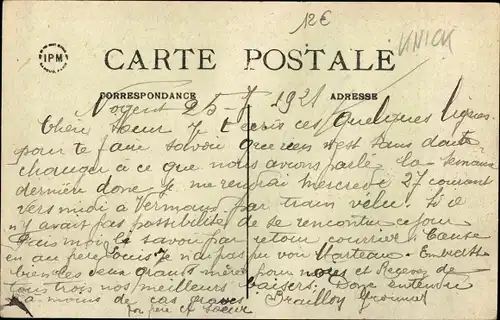 12€
UNICK
IPM
CARTE POSTALE
CORRESPONDANCE
ADRESSE
Nogent 25- 1921
Chère Soeur Je t'écris ces quelques lignes
pour te faire savoir que rien n'est sans doute
changer à ce que nous avions parlé la semaine
dernière donc je me rendrai mercredi 27 courant
vers midi à par train velu. Si il
n'y avait pas possibilité de se rencontrer ce jour
Fais moi le savoir par retour courrier. Cause
en au père Louis je n'ai pas pu voir Marteau. Embrasse
bien les deux grands mères pour nous et Reçevez de
tous trois nos meilleurs baisers. Donc entendu
à moins de cas graves
ton père et soeur